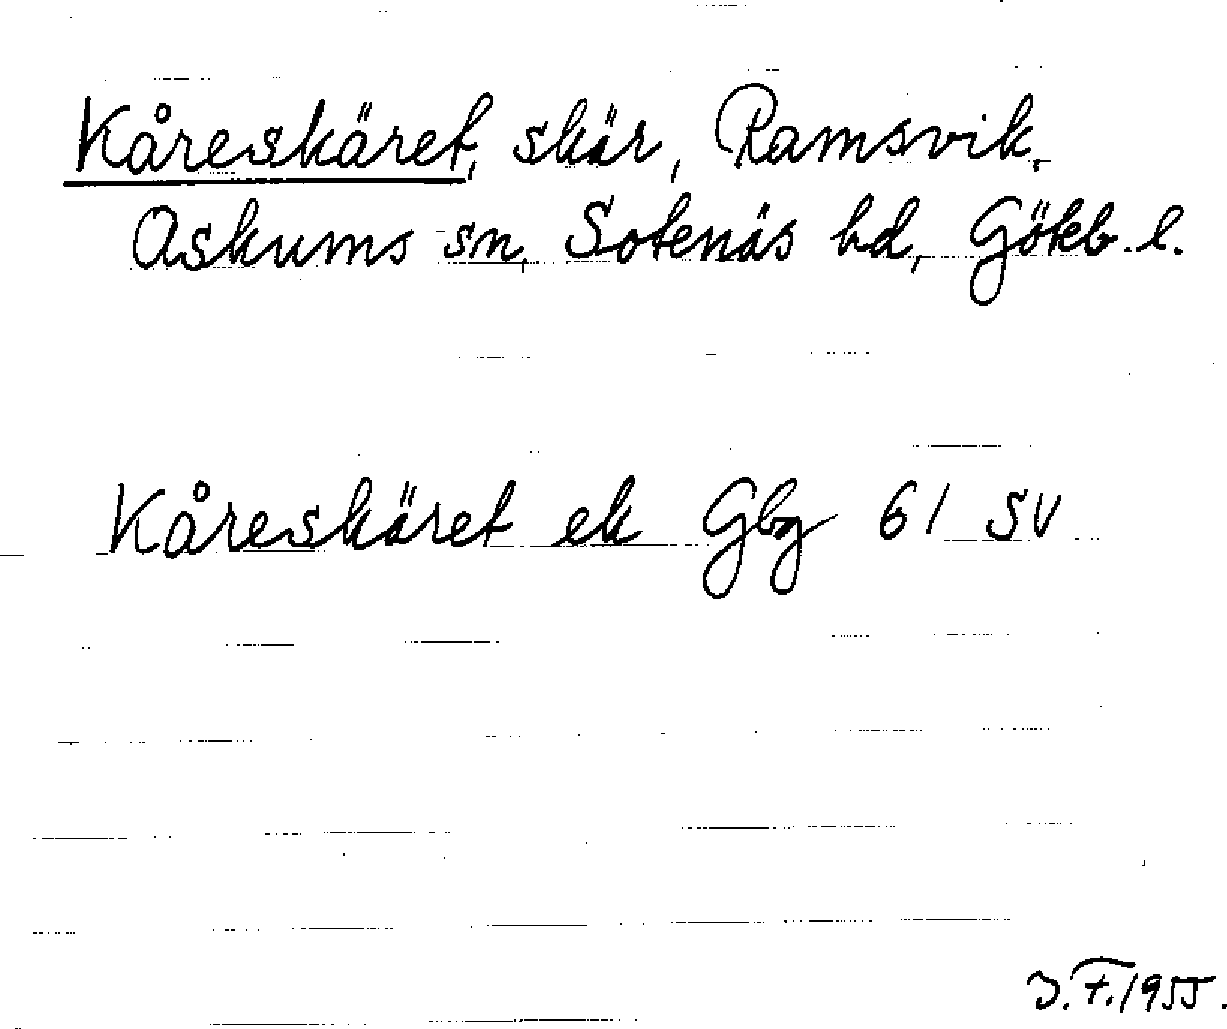 Kåreskäret, skär, Ramsvik,
Askums sn, Sotenäs hd, Göteb. l.
Kåreskäret ek Gbg 61 SV
J.F. 1955.